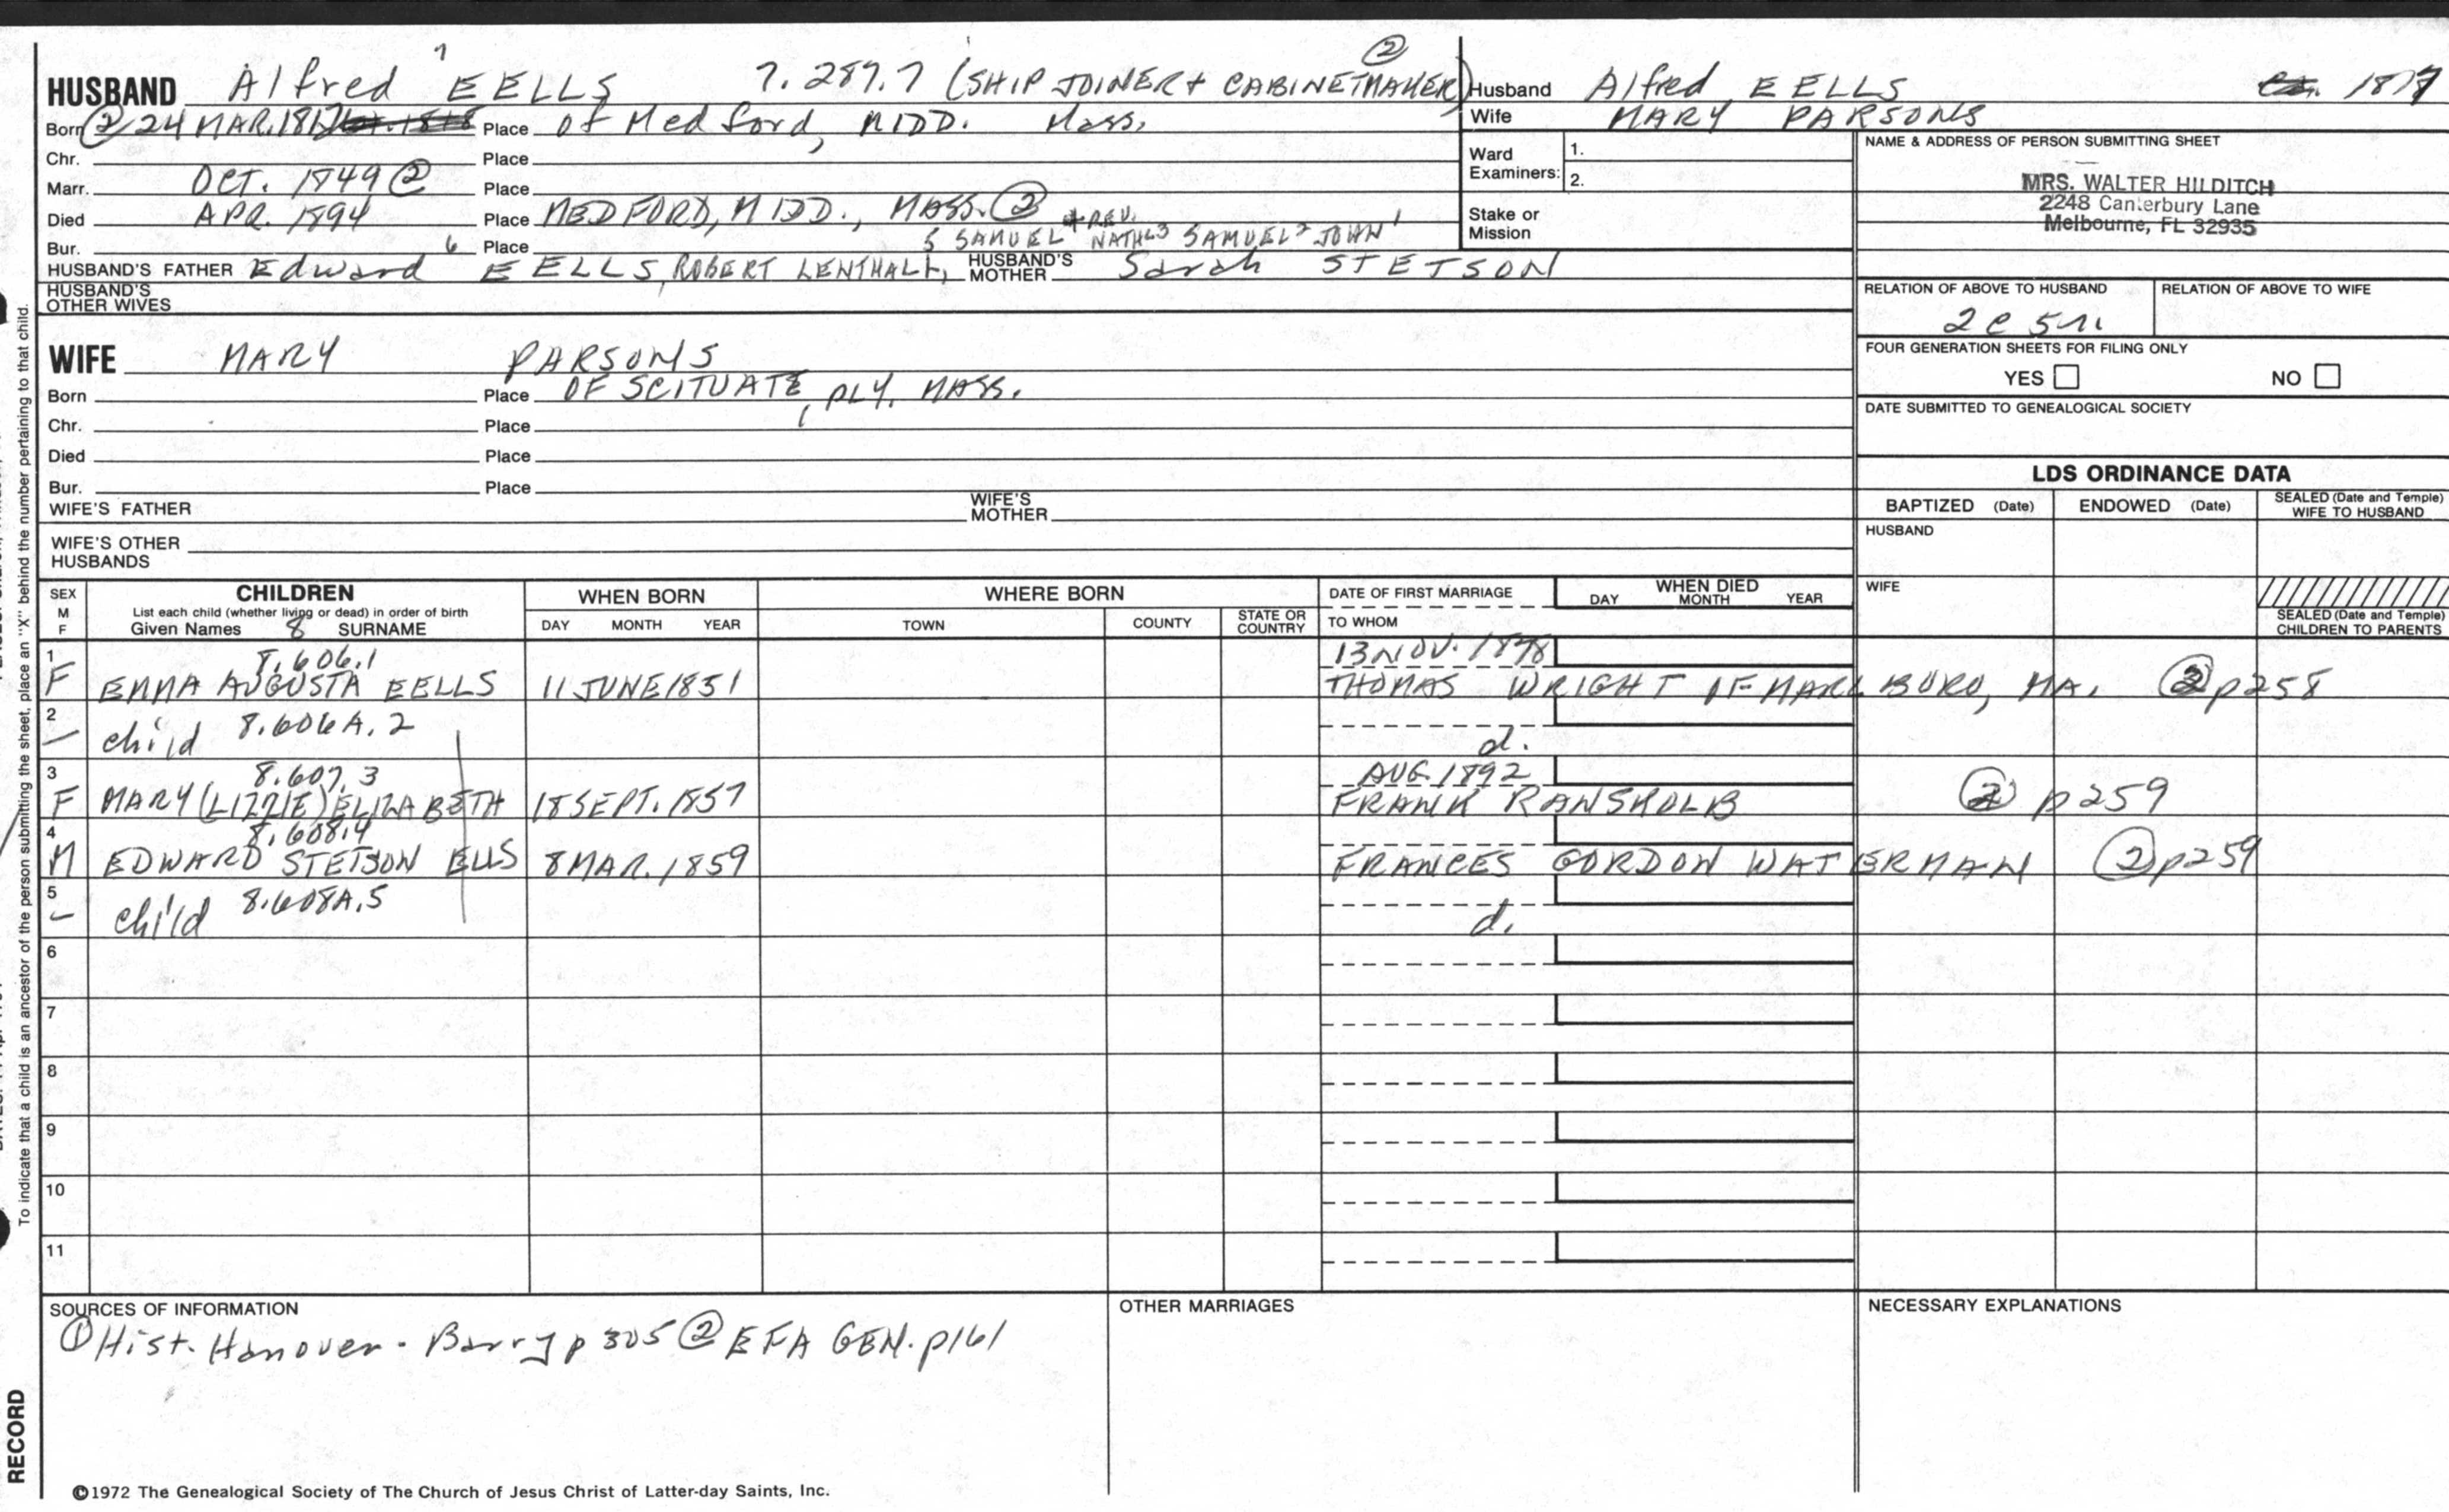 HUSBAND Alfred 7 EELLS 7.287.7 (SHIP JOINER + CABINETMAKER) ②
Born ② 24 MAR. 1817 Place of Medford, MIDD. Mass.
Chr. Place
Marr. OCT. 1849 ② Place
Died APR. 1894 Place MEDFORD, MIDD., MASS. ②
Bur. Place
HUSBAND'S FATHER Edward 6 EELLS, ROBERT LENTHALL, 5 SAMUEL 4 REV. NATHL 3 SAMUEL 2 JOHN 1 HUSBAND'S MOTHER Sarah STETSON
HUSBAND'S OTHER WIVES
WIFE MARY PARSONS
Born Place OF SCITUATE, PLY. MASS.
Chr. Place
Died Place
Bur. Place
WIFE'S FATHER WIFE'S MOTHER
WIFE'S OTHER HUSBANDS
Husband Alfred EELLS 1817
Wife MARY PARSONS
Ward Examiners: 1.
2.
Stake or Mission
NAME & ADDRESS OF PERSON SUBMITTING SHEET
MRS. WALTER HILDITCH
2248 Canterbury Lane
Melbourne, FL 32935
RELATION OF ABOVE TO HUSBAND RELATION OF ABOVE TO WIFE
2c 5r.
FOUR GENERATION SHEETS FOR FILING ONLY
YES NO
DATE SUBMITTED TO GENEALOGICAL SOCIETY
LDS ORDINANCE DATA
BAPTIZED (Date) ENDOWED (Date) SEALED (Date and Temple) WIFE TO HUSBAND
HUSBAND
WIFE
SEALED (Date and Temple) CHILDREN TO PARENTS
SEX M F CHILDREN WHEN BORN WHERE BORN DATE OF FIRST MARRIAGE WHEN DIED
List each child (whether living or dead) in order of birth
Given Names 8 SURNAME DAY MONTH YEAR TOWN COUNTY STATE OR COUNTRY TO WHOM DAY MONTH YEAR
1 8.606.1 13 NOV. 1878
F EMMA AUGUSTA EELLS 11 JUNE 1851 THOMAS WRIGHT OF MARLBORO, MA. ② p258
2
— child 8.606A.2 d.
3 8.607.3 AUG. 1892
F MARY (LIZZIE) ELIZABETH 18 SEPT. 1857 FRANK RANSKOLB ② p259
4 8.608.4
M EDWARD STETSON ELLS 8 MAR. 1859 FRANCES GORDON WATERMAN ② p259
5
— child 8.608A.5 d.
6
7
8
9
10
11
SOURCES OF INFORMATION OTHER MARRIAGES NECESSARY EXPLANATIONS
① Hist. Hanover - Barry p 305 ② EFA GEN. p161
©1972 The Genealogical Society of The Church of Jesus Christ of Latter-day Saints, Inc.
To indicate that a child is an ancestor of the person submitting the sheet, place an "X" behind the number pertaining to that child.
RECORD